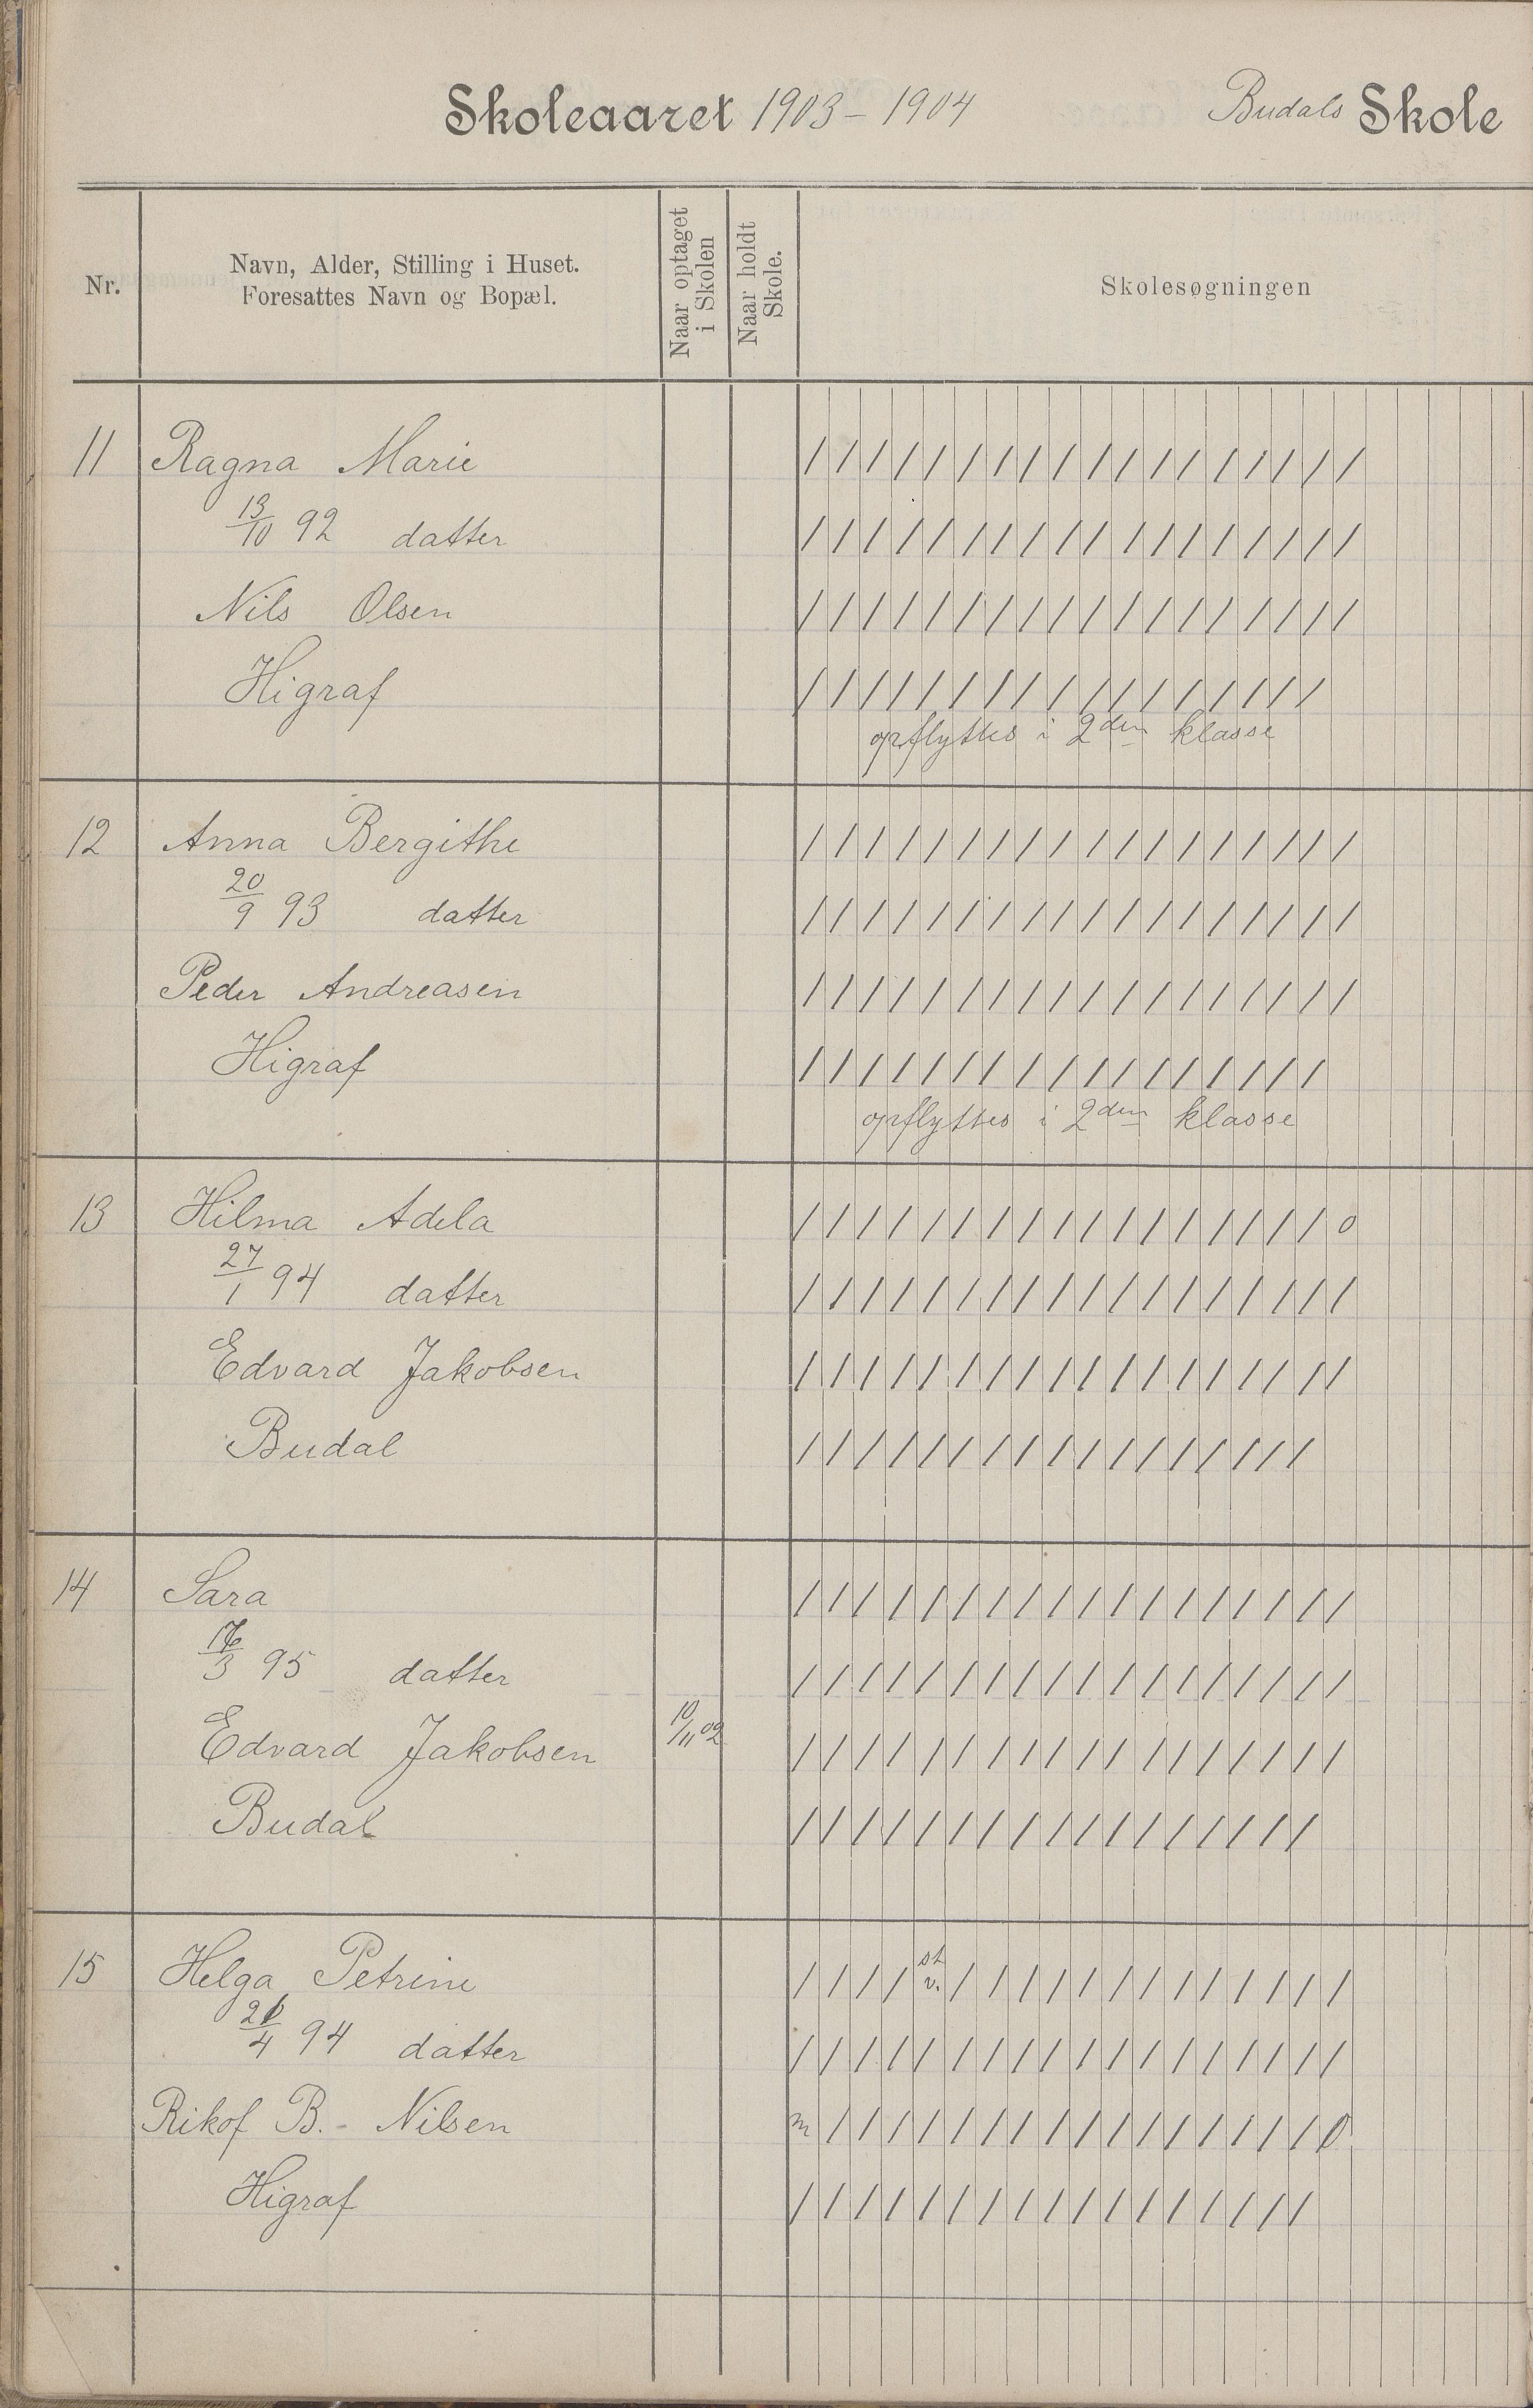 Skoleaaret 1903 - 1904 Budals Skole
Nr.
Navn, Alder, Stilling i Huset.
Foresattes Navn og Bopæl.
Naar optaget
i Skolen
Naar holdt
Skole.
Skolesøgningen
11 Ragna Marie / / / / / / / / / / / / / / / / / /
13/10 92 datter / / / / / / / / / / / / / / / / / /
Nils Olsen / / / / / / / / / / / / / / / / / /
Higraf / / / / / / / / / / / / / / / / /
opflyttes i 2den klasse
12 Anna Bergithe / / / / / / / / / / / / / / / / / /
20/9 93 datter / / / / / / / / / / / / / / / / / /
Peder Andreasen / / / / / / / / / / / / / / / / / /
Higraf / / / / / / / / / / / / / / / / /
opflyttes i 2den klasse
13 Hilma Adela / / / / / / / / / / / / / / / / / 0
27/1 94 datter / / / / / / / / / / / / / / / / / /
Edvard Jakobsen / / / / / / / / / / / / / / / / / /
Budal / / / / / / / / / / / / / / / / /
14 Sara / / / / / / / / / / / / / / / / / /
/3 95 datter / / / / / / / / / / / / / / / / / /
Edvard Jakobsen 10/11 02 / / / / / / / / / / / / / / / / / /
Budal / / / / / / / / / / / / / / / / /
15 Helga Petrine / / / / st v. / / / / / / / / / / / / /
/4 94 datter / / / / / / / / / / / / / / / / / /
Rikof B. - Nilsen m / / / / / / / / / / / / / / / / 0
Higraf / / / / / / / / / / / / / / / / /